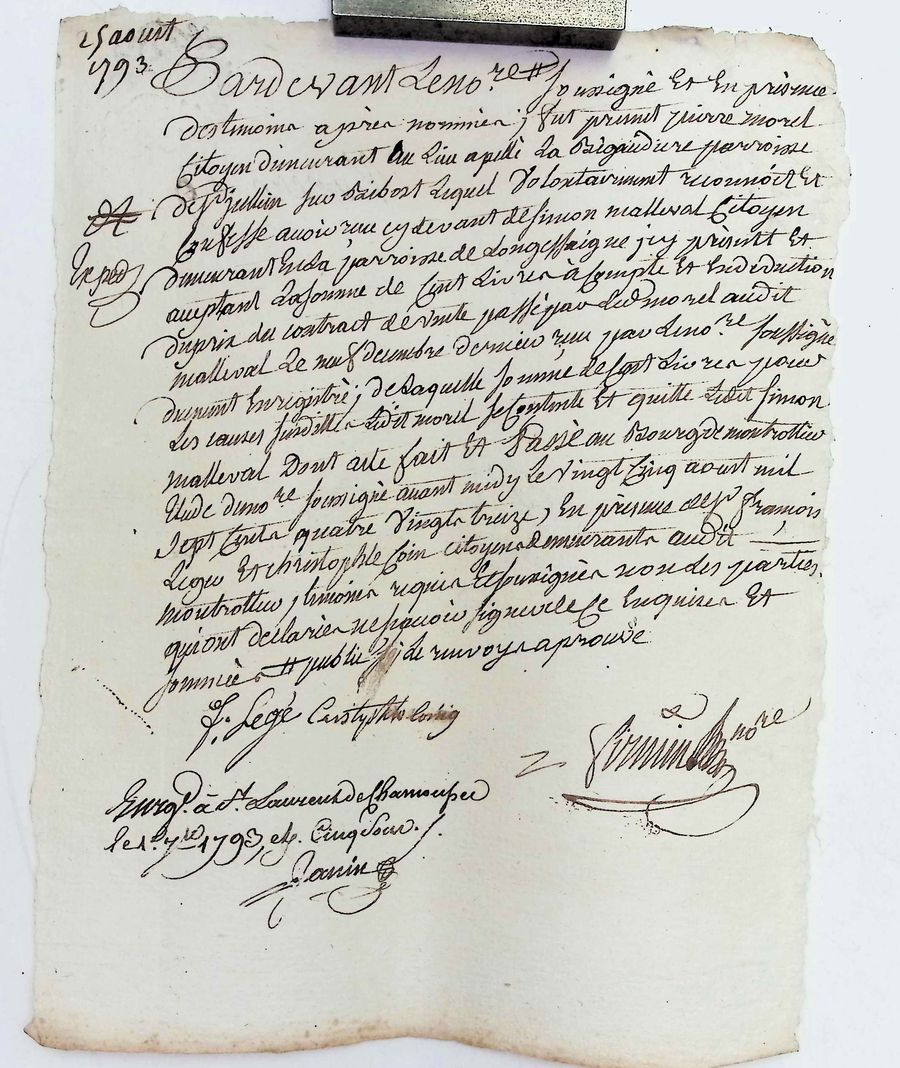 25 aoust
1793
Pardevant Le no.re # soussigné Et En présence
des témoins après nommés, fut présent pierre morel
Citoyen demeurant au Lieu apellé La Bégaudière parroisse
de st jullien sur Bibost Lequel Volontairement reconnoit Et
Confesse avoir reçu cy devant de simon malleval Citoyen
Exped
demeurant En La parroisse de Longessaigne icy présent Et
aceptant La somme de Cent Livres à Compte Et En déduction
du prix du contract de vente passé par Led. morel audit
malleval Le neuf décembre dernier reçu par Le no.re soussigné
duement Enregistré; de Laquelle somme de Cent Livres pour
Les causes susdittes Ledit morel se Contente Et quitte Ledit simon
malleval Dont acte fait Et Passé au Bourg de montrottier
Etude du no.re soussigné avant midy Le vingt Cinq aoust mil
sept Cents quatre Vingts treize, En présence de sr. françois
Leger Et christophle Coin citoyens demeurants audit
montrottier, témoins requis Et soussignés non des parties
qui ont déclarées ne savoir signer de Ce Enquises Et
sommées # public Le renvoy approuvé
f. Legé Cristophle Coing
Firmin no.re
Enrgé. à St. Laurent de Chamousset
le 1er. 7bre 1793, rs. Cinq sous.
Janin